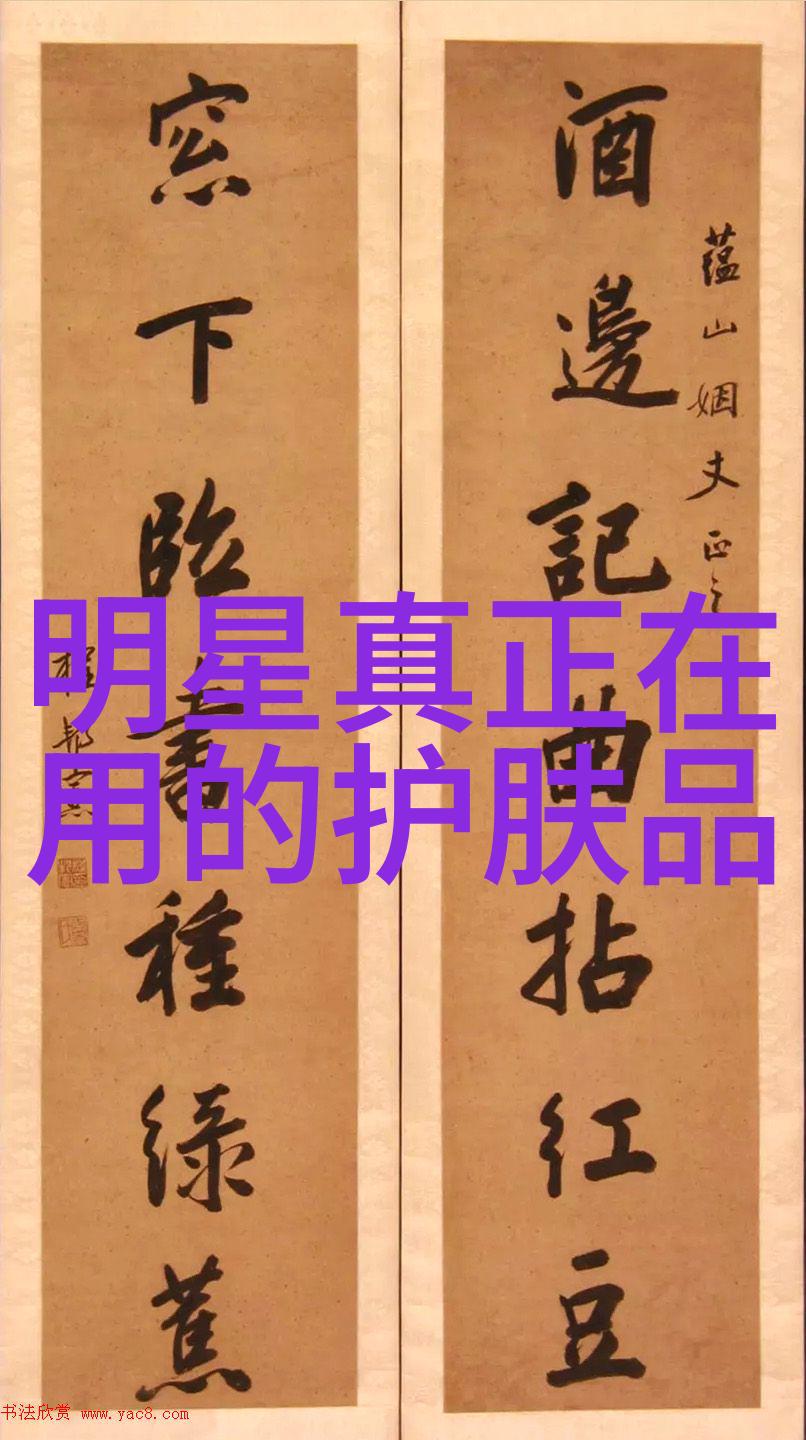 酒邊記曲拈紅豆
蘊山姻丈正之
窓下臨書種綠蕉
明星真正在
用的护肤品
书法欣赏 www.yac8.com